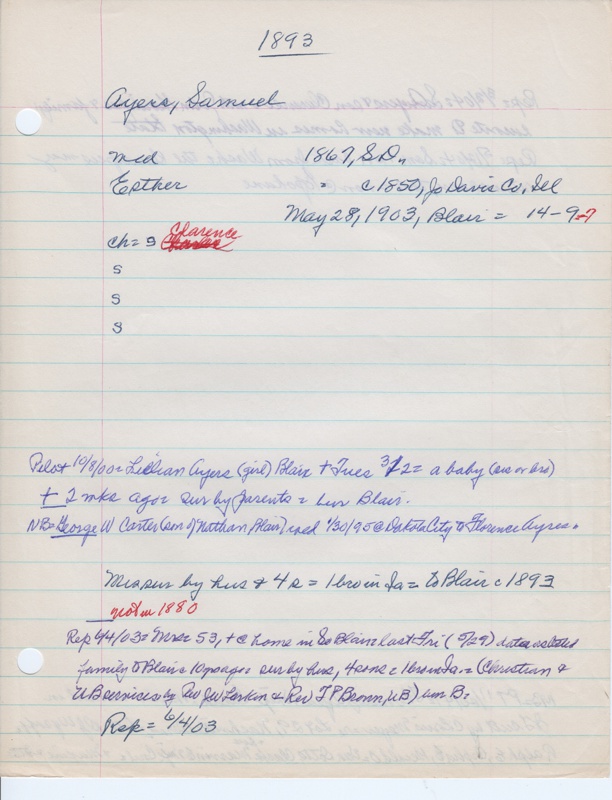 1893
Ayers, Samuel
md 1867, S.D.,
Esther = c1850, Jo Davis Co, Ill
May 28, 1903, Blair = 14-9-7
ch = s Clarence
s
s
s
Pilot 10/8/00 = Lillian Ayers (girl) Blair + Tues = a baby (sis or bro)
+ 2 wks ago = sur by parents = bur Blair.
NB = George W Carter (son of Nathan, Blair) md 1/30/95 @ Dakota City to Florence Ayres.
Mrs sur by hus + 4 s = 1 bro in Ia = to Blair c1893
not in 1880
Rep 6/4/03 = Mrs = 53, + @ home in So Blair last Fri (5/29)
family to Blair 10 yrs ago = sur by hus, 4 sons = 1 bro in Ia. = (Christian &
UB services by Rev JW Larkin & Rev T P Brown, UB) bur B =
Rep = 6/4/03